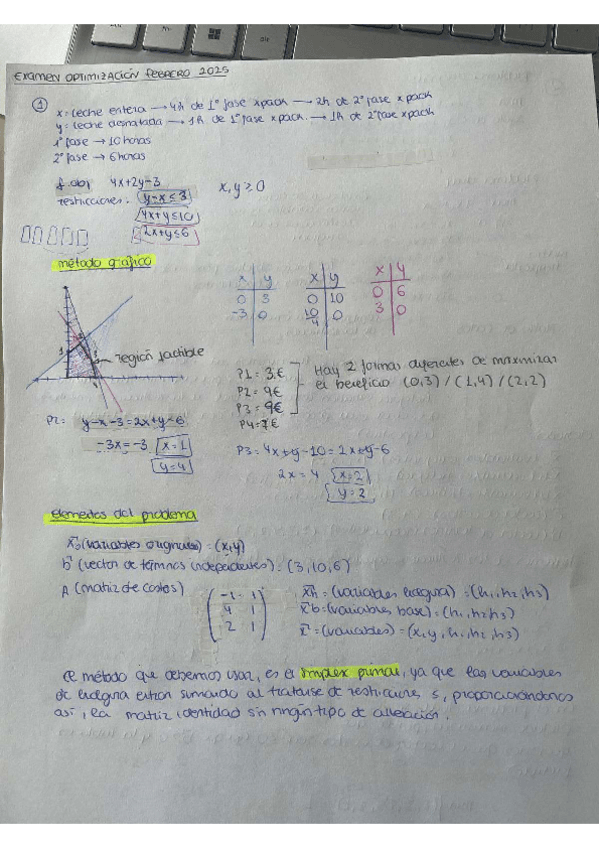 EXAMEN OPTIMIZACIÓN FEBRERO 2025
① x = leche entera → 4h de 1º fase x pack → 2h de 2º fase x pack
y = leche desnatada → 1h de 1º fase x pack. → 1h de 2º fase x pack
1º fase → 10 horas
2º fase → 6 horas
f. obj 4x+2y-3 x,y ≥ 0
restricciones: y-x ≤ 3
4x+y ≤ 10
2x+y ≤ 6
método gráfico
x y
0 3
-3 0
x y
0 10
10/4 0
x y
0 6
3 0
región factible
P1 = 3€
P2 = 9€
P3 = 9€
P4 = 7€
Hay 2 formas diferentes de maximizar
el beneficio (0,3) / (1,4) / (2,2)
P2: y-x-3 = 2x+y-6
-3x = -3 x = 1
y = 4
P3 = 4x+y-10 = 2x+y-6
2x = 4 x = 2
y = 2
elementos del problema
(variables originales) = (x,y)
b (vector de términos independientes) = (3,10,6)
A (matriz de costes)
-1 1
4 1
2 1
xh = (variables holgura) = (h1, h2, h3)
xb = (variables base) = (h1, h2, h3)
x = (variables) = (x, y, h1, h2, h3)
El método que debemos usar, es el simplex primal, ya que las variables
de holgura entran sumando al tratarse de restricciones ≤, proporcionándonos
así, la matriz identidad sin ningún tipo de alteración.